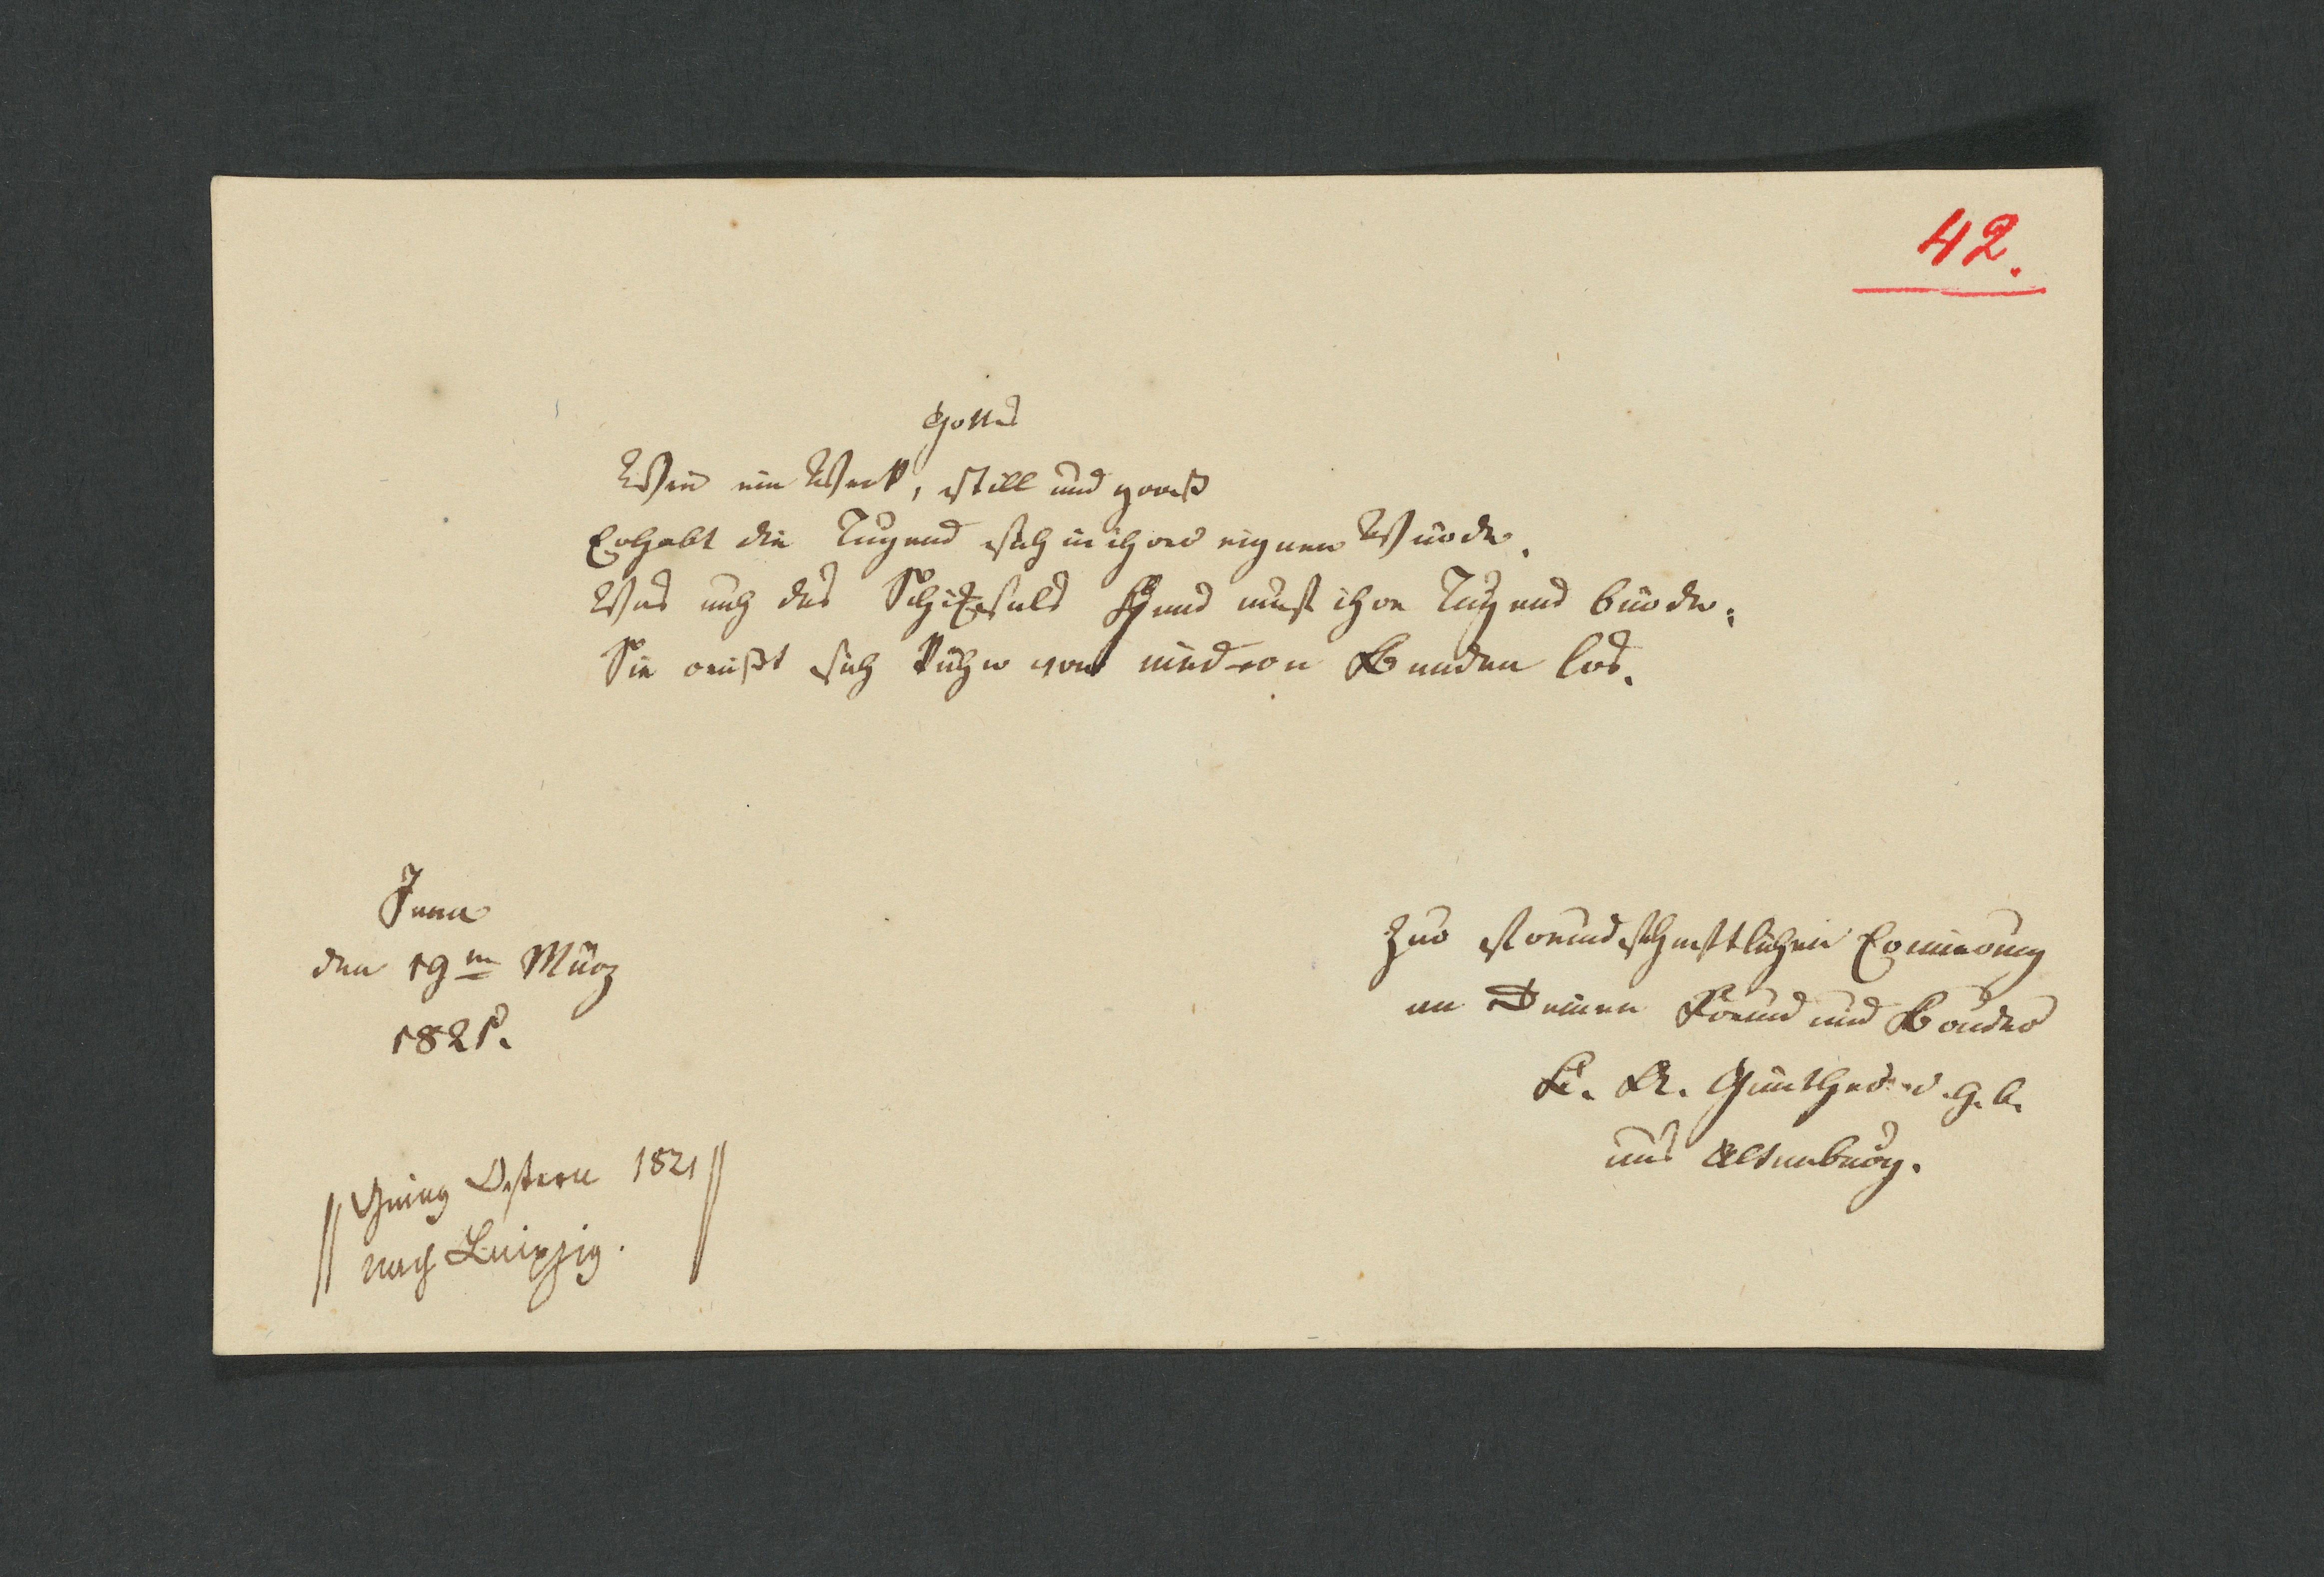 42.
Gottes
Wie ein Werk, still und groß
Erhebt die Tugend sich in ihrer eignen Würde.
Was auch des Schicksals Hand auf ihre Jugend bürde.
Sie reißt sich kühn von niedren Banden los.
Jena
den 19<u>n</u> März
1821.
Zur freundschaftlichen Erinnerung
an Deinen Freund und Bruder
Günther
aus Altenburg.
Ging Ostern 1821
nach Leipzig.